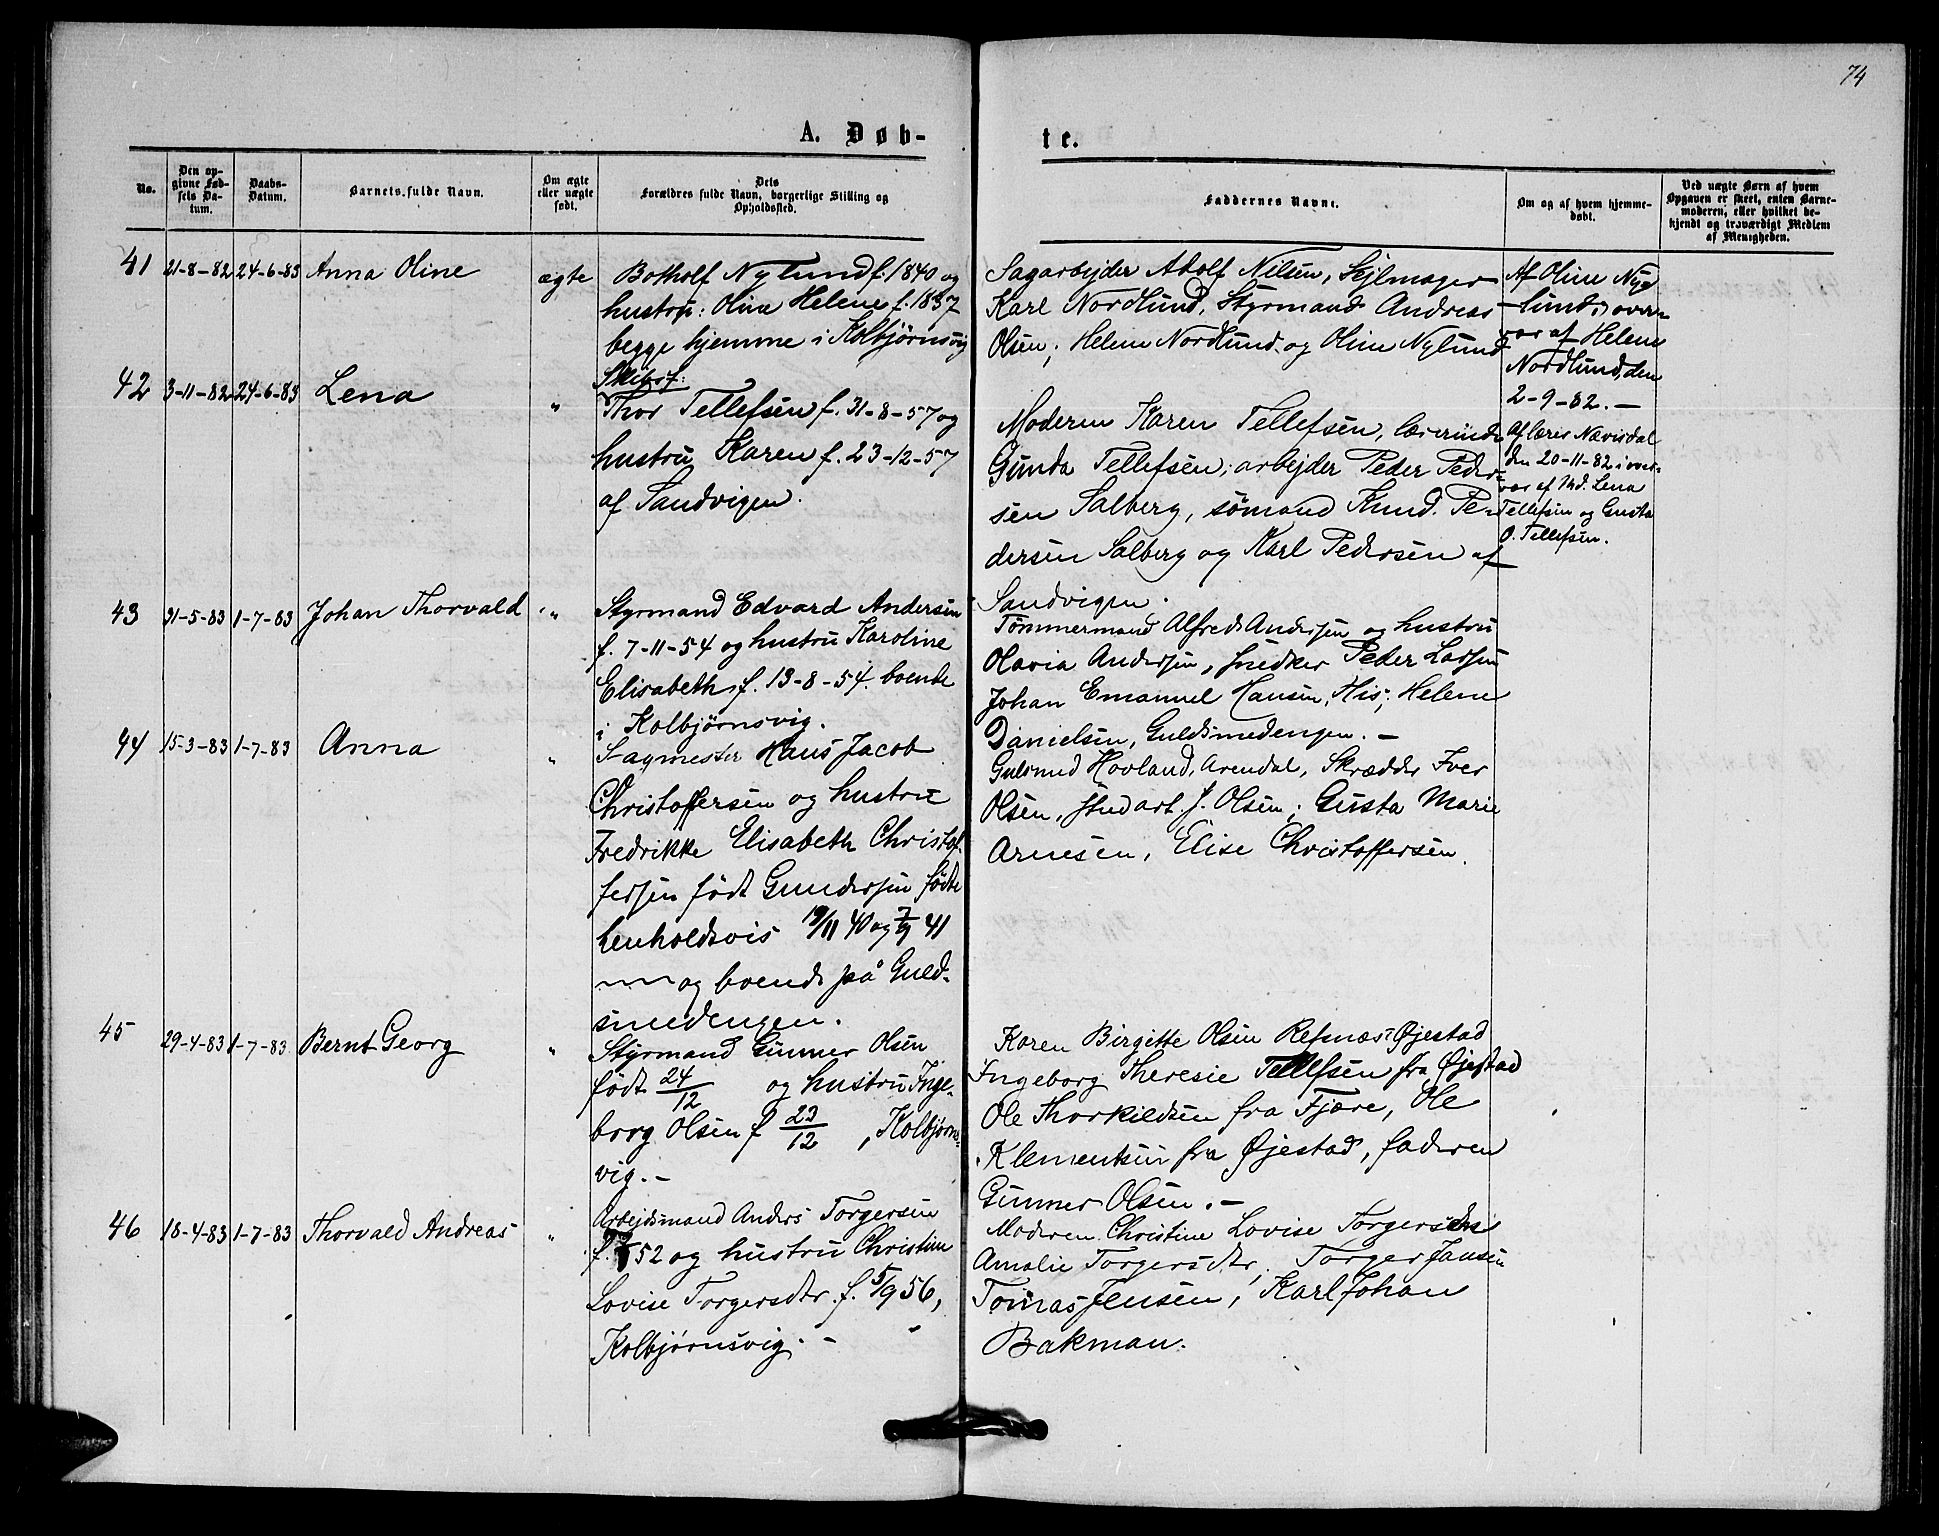 74
A. Døb-
te.
No.
Den op-
givne Fød-
sels Da-
tum.
Daabs-
Datum.
Barnets fulde Navn.
Om ægte
eller uægte
født.
Dets
Forældres fulde Navn, borgerlige Stilling og
Opholdssted.
Faddernes Navne.
Om og af hvem hjemme-
døbt.
Ved uægte Børn af hvem
Opgaven er skeet, enten Barne-
moderen, eller hvilket be-
kjendt og troværdigt Medlem
af Menigheden.
41 21-8-82 24-6-83 Anna Oline ægte
Botholf Nylund f. 1840 og
hustru: Olina Helene f. 1837
begge hjemme i Kolbjørnsvig
Sagarbejder Adolf Nilsen, Sejlmager
Karl Nordlund, Styrmand Andreas
Olsen; Helene Nordlund og Oline Nylund
Af Oline Nyg
lund i over-
vær af Helene
Nordlund, den
2-9-82. —
42 3-11-82 24-6-83 Lena "
Skibsf:
Thor Tellefsen f. 31-8-57 og
hustru Karen f. 23-12-57
af Sandvigen.
Moderen Karen Tellefsen, lærerinde
Gunda Tellefsen; arbejder Peder Peder-
sen Salberg, sømand Knud Pe-
dersen Salberg og Karl Pedersen af
Sandvigen.
Af lærer Nævisdal
den 20-11-82 i over-
vær af Md. Lena
Tellefsen og Gusta
O. Tellefsen.
43 31-5-83 1-7-83 Johan Thorvald "
Styrmand Edvard Andersen
f. 7-11-54 og hustru Karoline
Elisabeth, f. 13-8-54. boende
i Kolbjørnsvig.
Tømmermand Alfred Andersen og hustru
Olavia Andersen, snedker Peder Larsen
Johan Emanuel Hansen, His; Helene
Danielsen, Guldsmedengen. —
44 15-3-83 1-7-83 Anna "
Sagmester Hans Jacob
Christoffersen og hustru
Fredrikke Elisabeth Christof-
fersen født Gundersen fødte
henholdsvis 19/11 40 og 7/9 41
og boende på Guld-
smedengen.
Gulsmed Hovland, Arendal, Skrædder Iver
Olsen, stud art. J. Olsen; Gusta Marie
Arnesen, Elise Christoffersen.
45 29-4-83 1-7-83 Bernt Georg "
Styrmand Gunner Olsen
født 24/12 og hustru Inge-
borg Olsen f 23/12, Kolbjørns-
vig. —
Karen Birgitte Olsen Refnæs i Øjestad
Ingeborg Theresie Tellefsen fra Øjestad
Ole Thorkildsen fra Fjære, Ole
Klementsen fra Øjestad, faderen
Gunner Olsen. —
46 18-4-83 1-7-83 Thorvald Andreas "
Arbejdsmand Anders Torgersen
f. 52 og hustru Christine
Lovise Torgersdtr. f. 5/9 56,
Kolbjørnsvig. —
Moderen Christine Lovise Torgersdtr
Amalie Torgersdtr, Torger Jansen
Tomas Jensen, Karl Johan
Bakman.